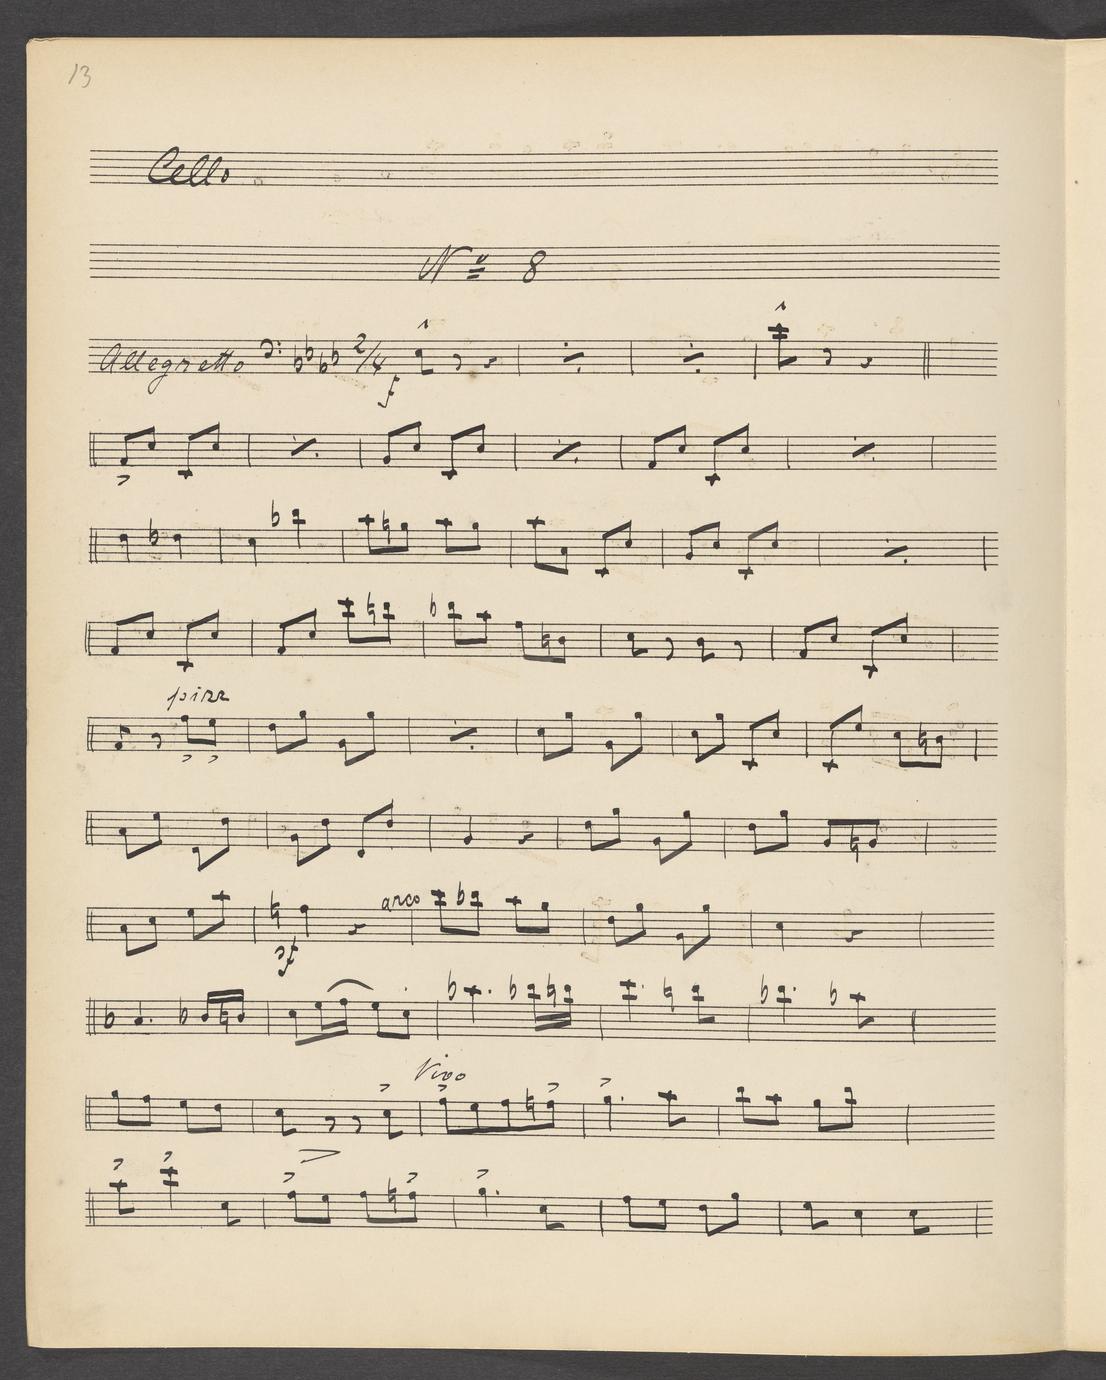 13
Cello
Nº 8
Allegretto 2/4
f
pizz
arco
sf
Vivo